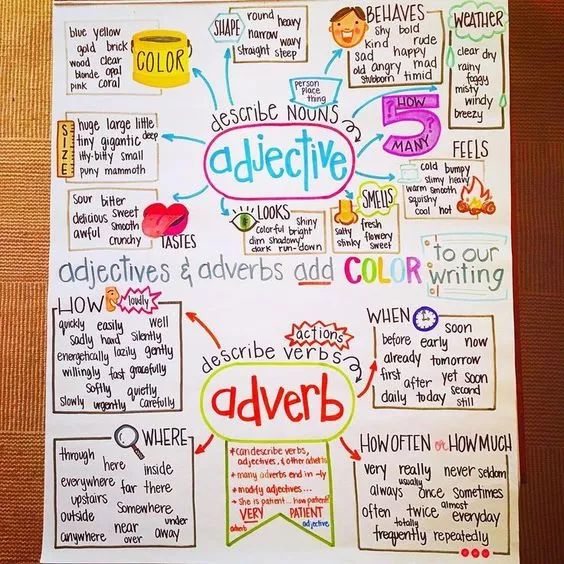 blue yellow
gold brick
wood clear
blonde opal
pink coral
COLOR
SHAPE
round heavy
narrow wavy
straight steep
BEHAVES
shy bold
kind rude
sad happy
old angry mad
stubborn timid
WEATHER
clear dry
rainy
foggy
misty
windy
breezy
person
place
thing
describe NOUNS
adjective
? HOW ?
5
MANY
SIZE
huge large little
tiny gigantic deep
itty-bitty small
puny mammoth
FEELS
cold bumpy
slimy heavy
warm smooth
squishy
cool hot
sour bitter
delicious sweet
awful smooth
crunchy
TASTES
LOOKS
shiny
colorful bright
dim shadowy
dark run-down
SMELLS
salty fresh
flowery
stinky sweet
adjectives & adverbs add COLOR to our
writing
HOW loudly
quickly easily well
sadly hard silently
energetically lazily gently
willingly fast gracefully
softly quietly
slowly urgently carefully
actions
describe verbs
adverb
WHEN
soon
before early now
already tomorrow
first after yet soon
daily today second
still
WHERE
through
here inside
everywhere far there
upstairs
outside Somewhere
near under
anywhere over away
• can describe verbs,
adjectives, & other adverbs
• many adverbs end in -ly
• modify adjectives...
• She is patient... how patient?
VERY PATIENT
adverb adjective
HOW OFTEN or HOW MUCH
very really never seldom
usually
always once sometimes
often twice almost
totally everyday
frequently repeatedly